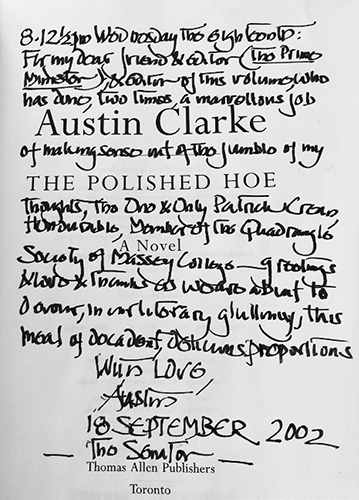 8.12½pm Wednesday the eighteenth:
For my dear friend & editor (The Prime
Minister), & editor of this volume, who
has done, two times, a marvellous job
Austin Clarke
of making sense out of the jumble of my
THE POLISHED HOE
Thoughts, The One & Only Patrick Crean,
Honourable, Member of the Quadrangle
A Novel
Society of Massey College — greetings
& love & thanks as we are about to
devour, in our literary gluttony, this
meal of decadent, proportions
With Love
Austin
18 SEPTEMBER 2002
— The Senator —
Thomas Allen Publishers
Toronto